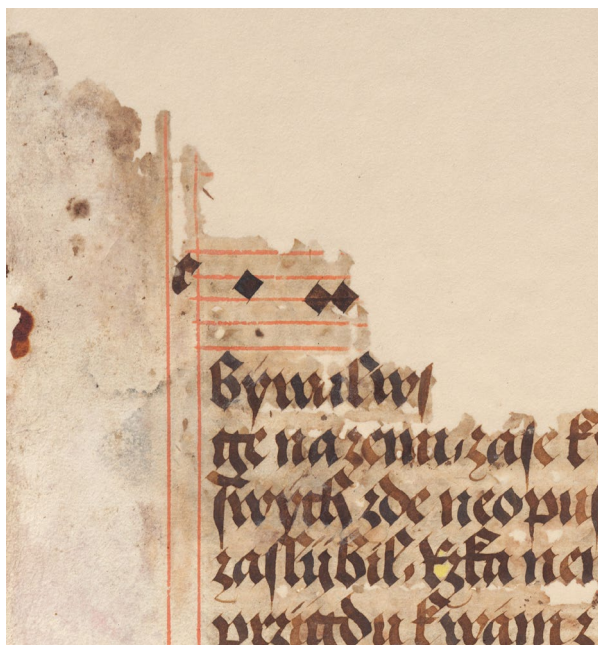 ge na zemi, zase k
swych zde neopus
zaslijbil, rzka nen
przigdu k wam z